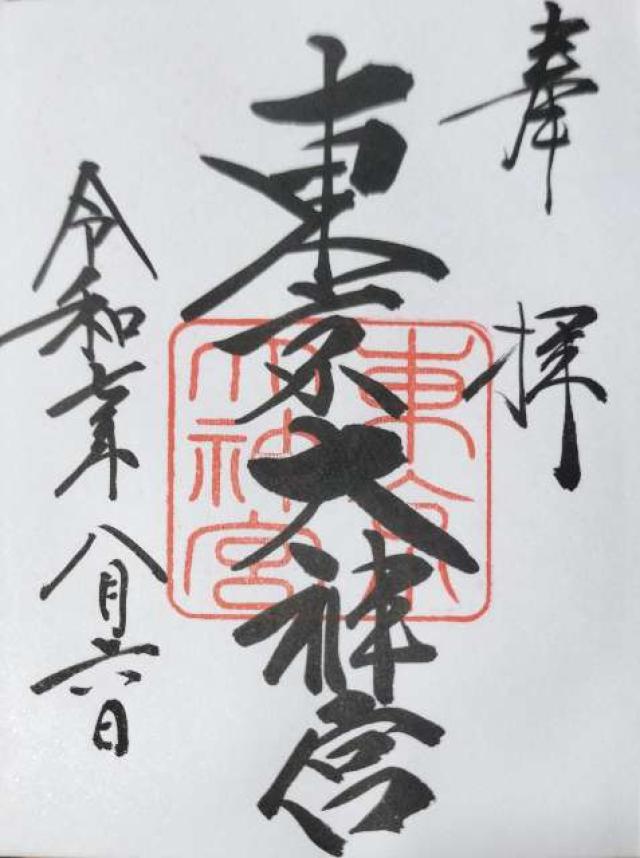 奉拝
東京大神宮
東京大神宮
令和七年八月六日